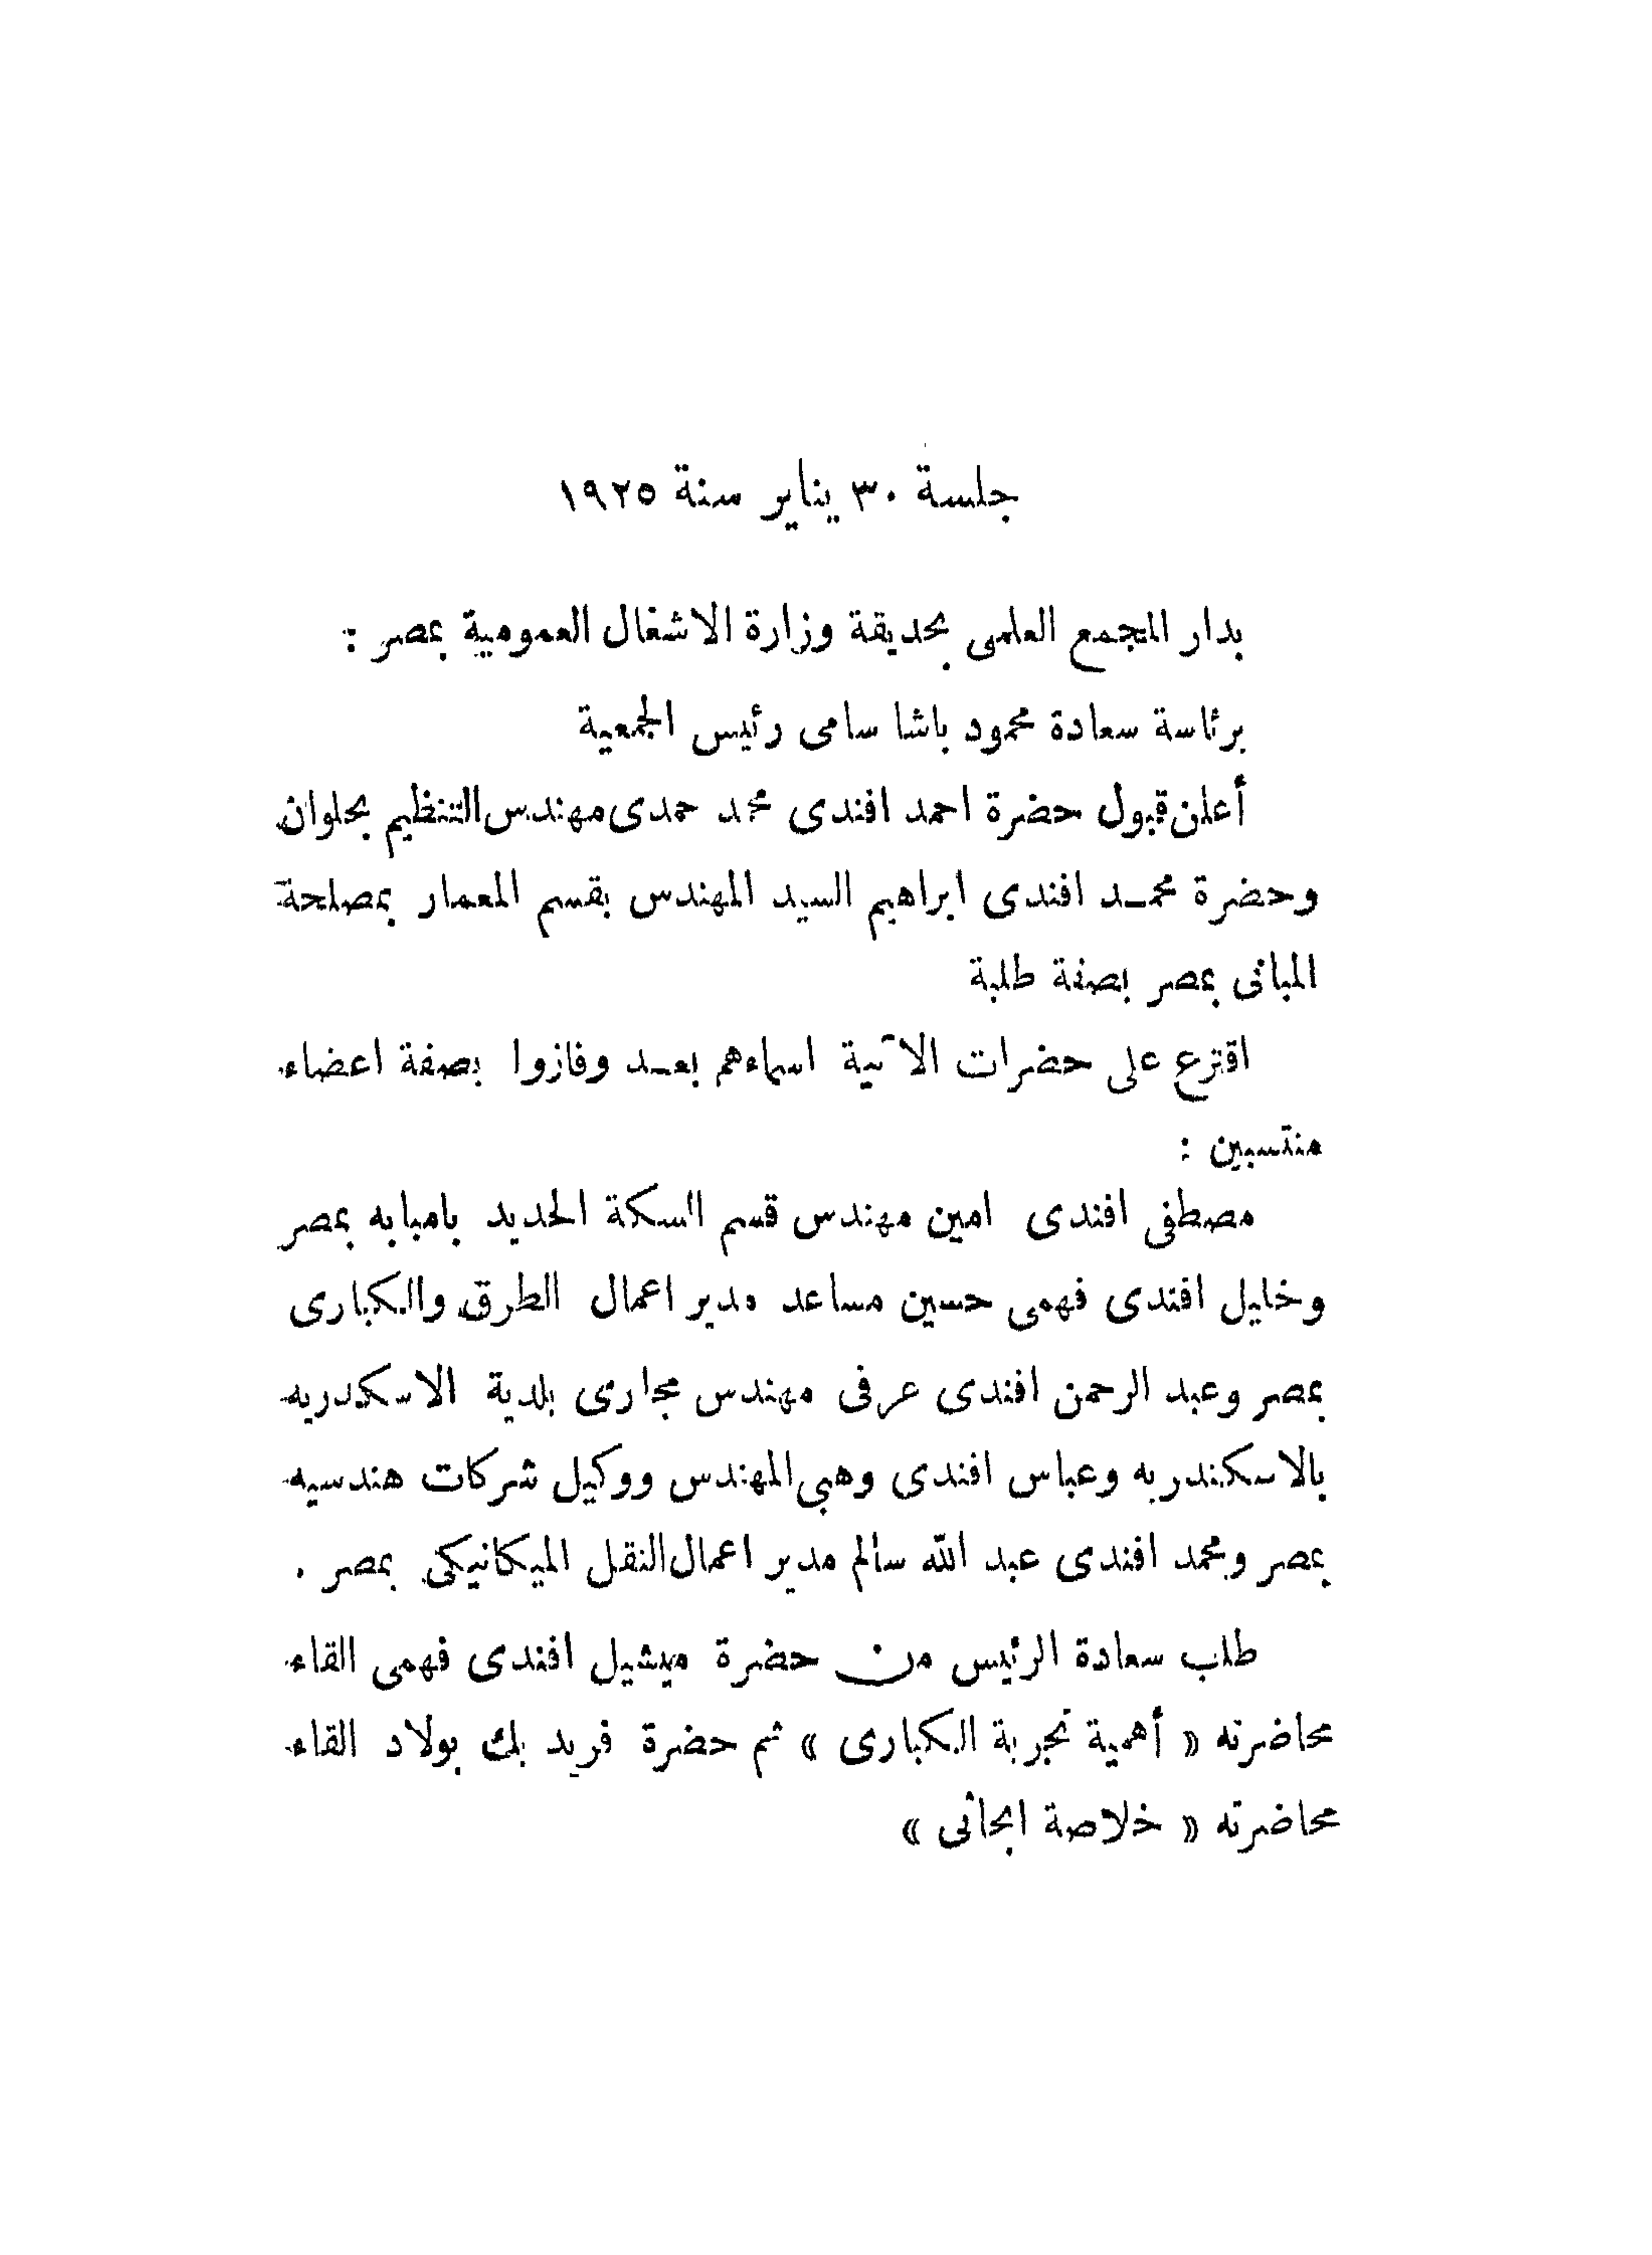 جلسة ٣٠ يناير سنة ١٩٢٥
بدار المجمع العلمى بحديقة وزارة الاشغال العمومية بمصر :
برئاسة سعادة محمود باشا سامى رئيس الجمعية
أعلن قبول حضرة احمد افندى محمد حمدى مهندس التنظيم بحلوان
وحضرة محمـد افندى ابراهيم السيد المهندس بقسم المعمار بمصلحة
المبانى بمصر بصفة طلبة
اقترع على حضرات الآتية اسماءهم بعـد وفازوا بصفة اعضاء
منتسبين :
مصطفى افندى امين مهندس قسم السكة الحديد بامبابه بمصر
وخليل افندى فهمى حسين مساعد مدير اعمال الطرق والكبارى
بمصر وعبد الرحمن افندى عرفى مهندس مجارى بلدية الاسكندريه
بالاسكندريه وعباس افندى وهبى المهندس ووكيل شركات هندسيه
بمصر ومحمد افندى عبد الله سالم مدير اعمال النقل الميكانيكى بمصر .
طلب سعادة الرئيس من حضرة ميشيل افندى فهمى القاء
محاضرته « أهمية تجربة الكبارى » ثم حضرة فريد بك بولاد القاء
محاضرته « خلاصة ابحاثى »